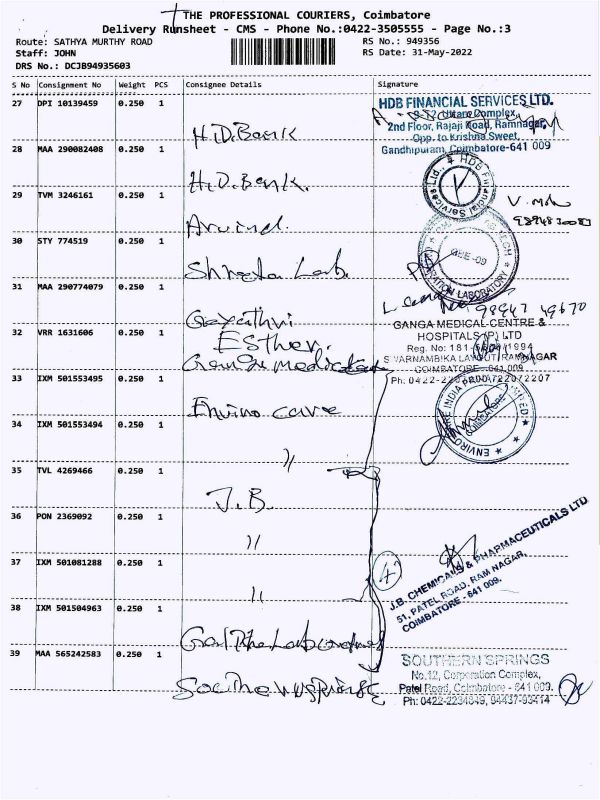 THE PROFESSIONAL COURIERS, Coimbatore
Delivery Runsheet - CMS - Phone No.:0422-3505555 - Page No.:3
Route: SATHYA MURTHY ROAD
Staff: JOHN
DRS No.: DCJB94935603
RS No.: 949356
RS Date: 31-May-2022
S No Consignment No Weight PCS Consignee Details Signature
27 DPI 10139459 0.250 1
H.D.Bank
HDB FINANCIAL SERVICES LTD.
2nd Floor, Rajaji Road, Ramnagar,
Opp. to Krishna Sweet,
Gandhipuram, Coimbatore-641 009
28 MAA 290082408 0.250 1
H.D.Bank.
HDB Financial Services Ltd.,
29 TVM 3246161 0.250 1
Arvind.
30 STY 774519 0.250 1
Shreeta Lab.
LABORATORY
31 MAA 290774079 0.250 1
Gayathri
98947 49670
32 VRR 1631606 0.250 1
Esther.
GANGA MEDICAL CENTRE &
HOSPITALS (P) LTD
SWARNAMBIKA LAYOUT, RAMNAGAR
COIMBATORE - 641 009
33 IXM 501553495 0.250 1
Enviro care
34 IXM 501553494 0.250 1
"
35 TVL 4269466 0.250 1
J.B.
36 PON 2369092 0.250 1
"
37 IXM 501081288 0.250 1
"
4
J.B. CHEMICALS & PHARMACEUTICALS LTD
51, PATEL ROAD, RAM NAGAR,
COIMBATORE - 641 009.
38 IXM 501504963 0.250 1
39 MAA 565242583 0.250 1
SOUTHERN SPRINGS
No.12, Corporation Complex,
Patel Road, Coimbatore - 641 009.